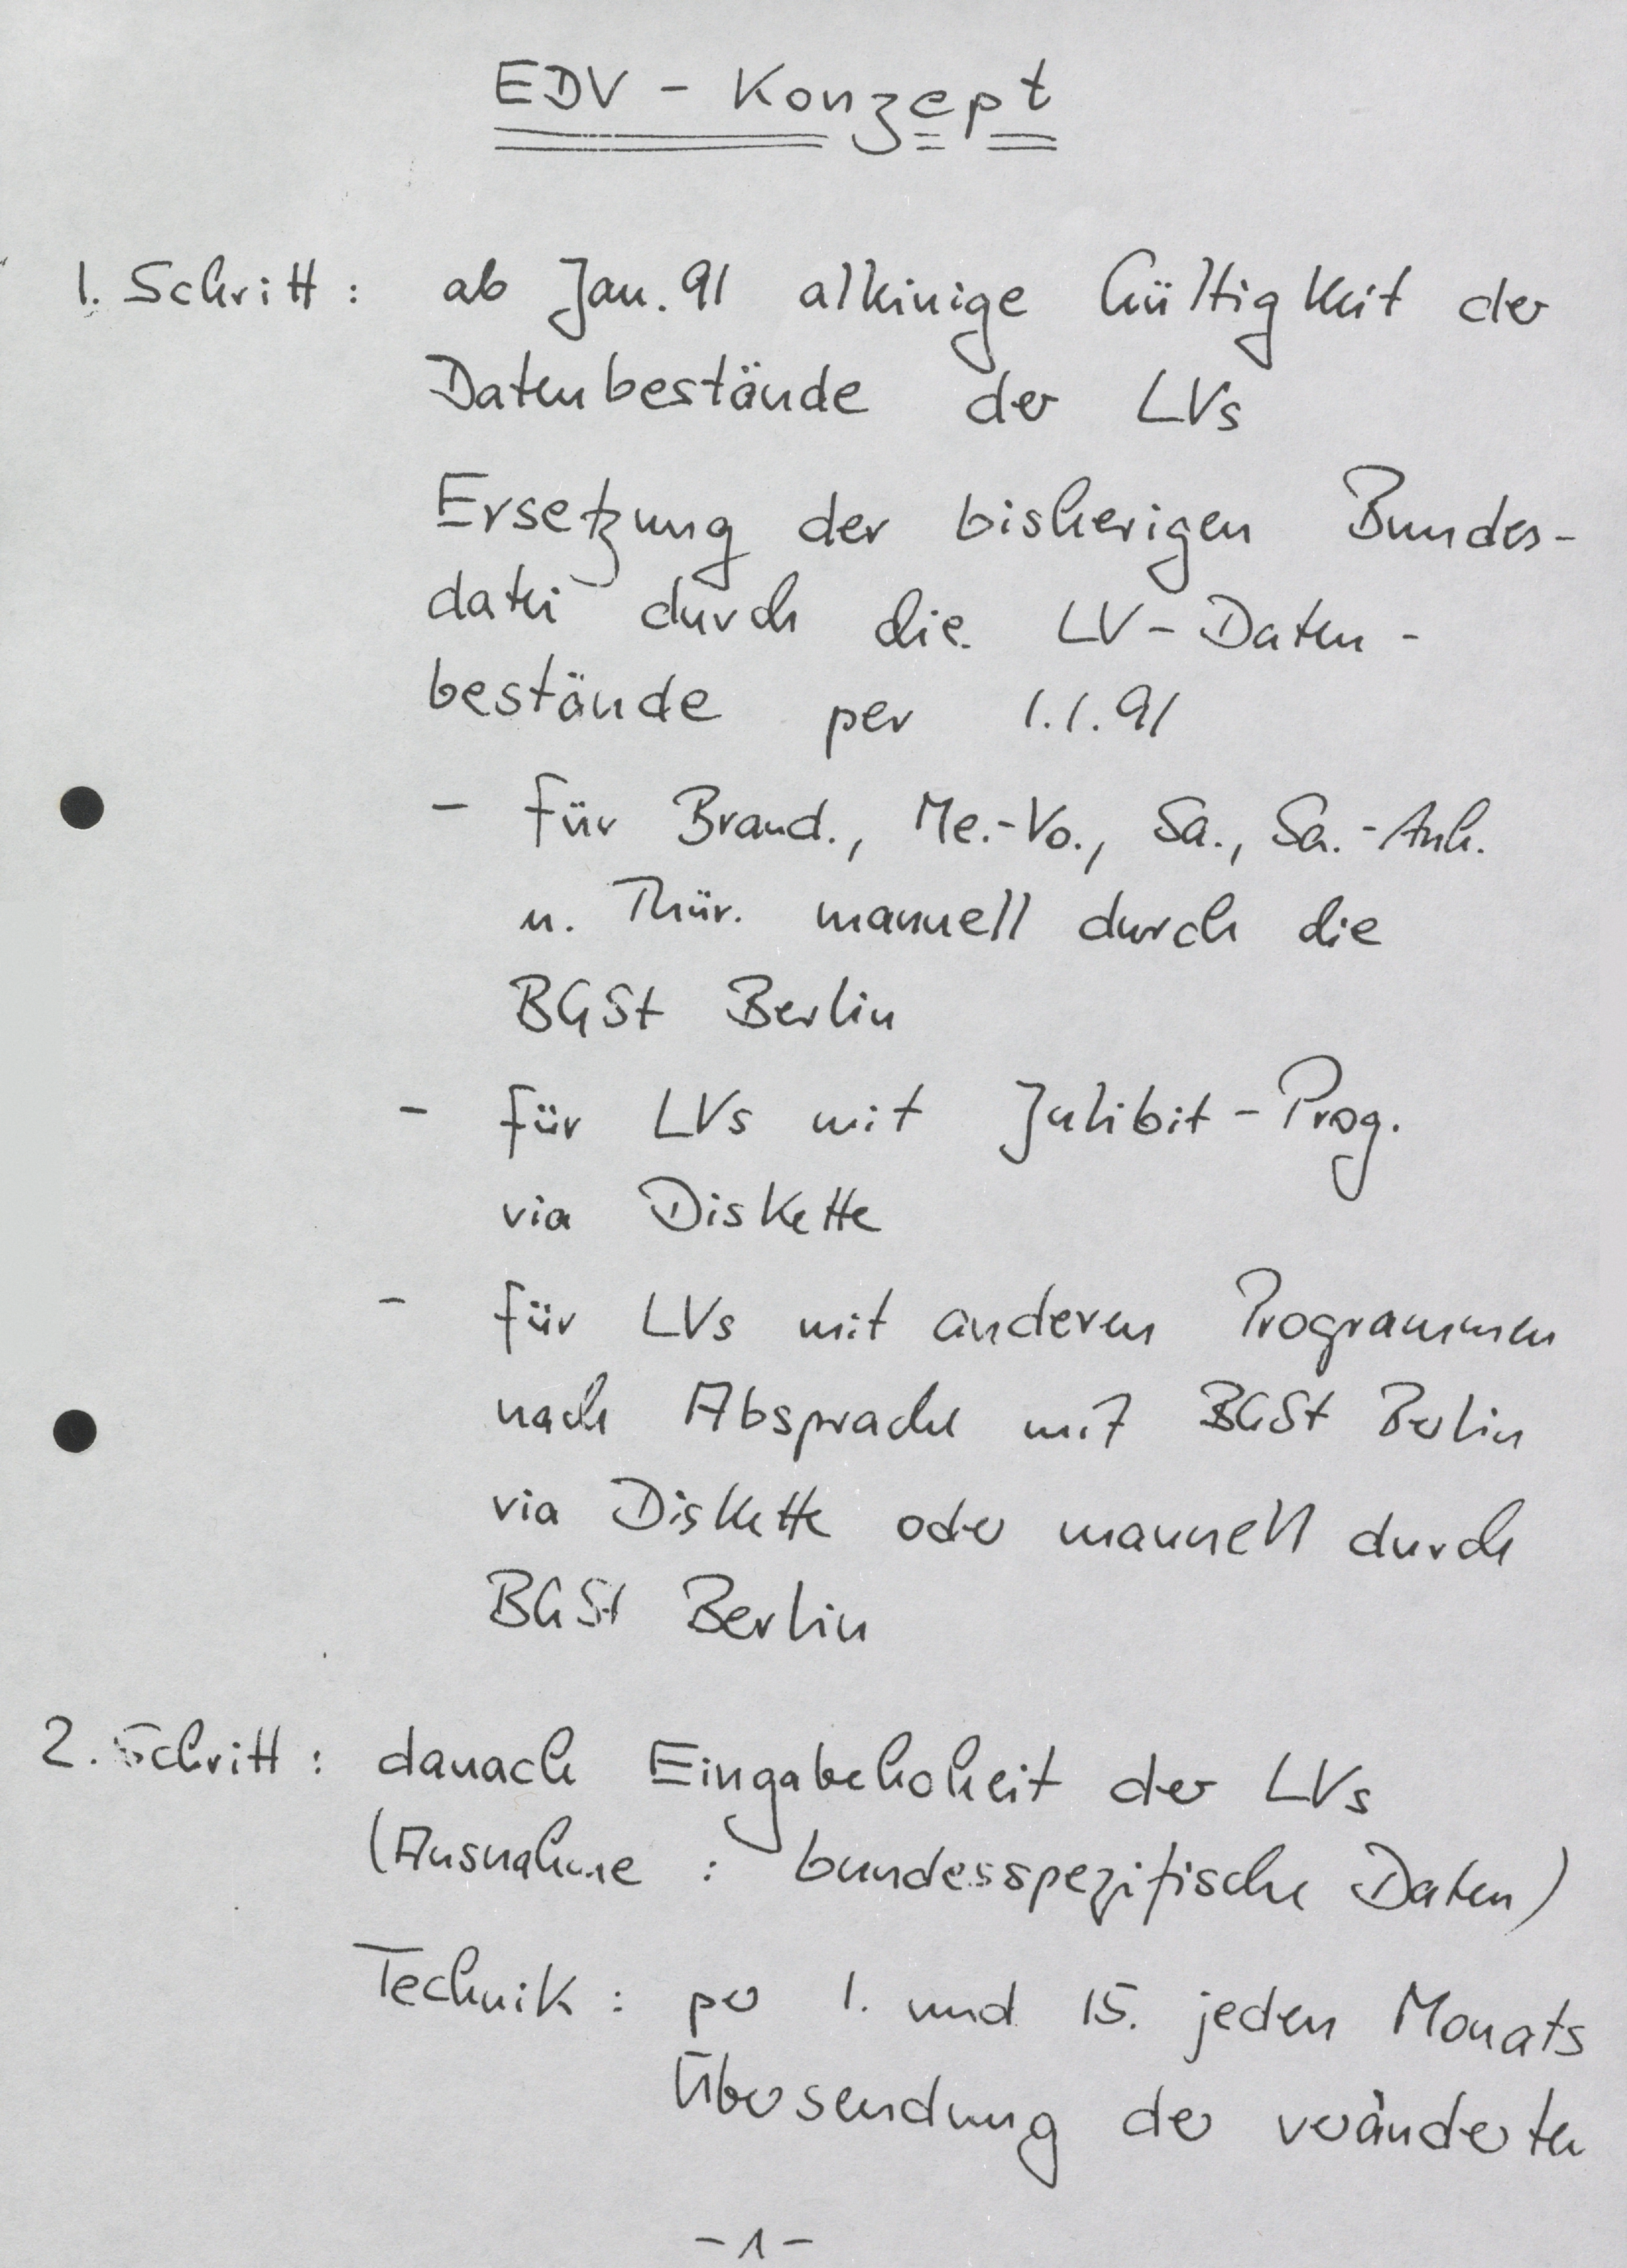 EDV - Konzept
1. Schritt : ab Jan. 91 alleinige Gültigkeit der
Datenbestände der LVs
Ersetzung der bisherigen Bundes-
datei durch die LV - Daten -
bestände per 1.1.91
- für Brand., Me.-Vo., Sa., Sa.-Anh.
u. Thür. manuell durch die
BGSt Berlin
- für LVs mit Julibit - Prog.
via Diskette
- für LVs mit anderen Programmen
nach Absprache mit BGSt Berlin
via Diskette oder manuell durch
BGSt Berlin
2. Schritt : danach Eingabehoheit der LVs
(Ausnahme : bundesspezifische Daten)
Technik : per 1. und 15. jeden Monats
Übersendung der veränderten
- 1 -